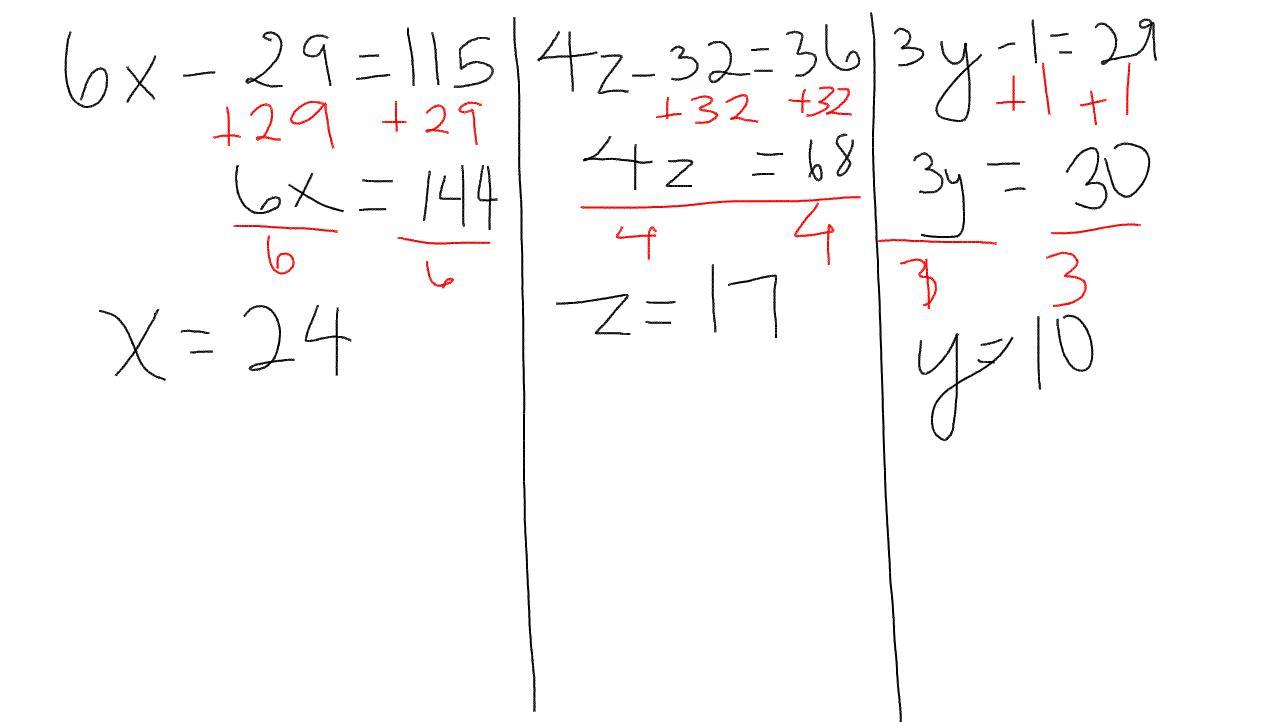 6x - 29 = 115
+29 +29
6x = 144
6 6
x = 24
4z - 32 = 36
+32 +32
4z = 68
4 4
z = 17
3y - 1 = 29
+1 +1
3y = 30
3 3
y = 10